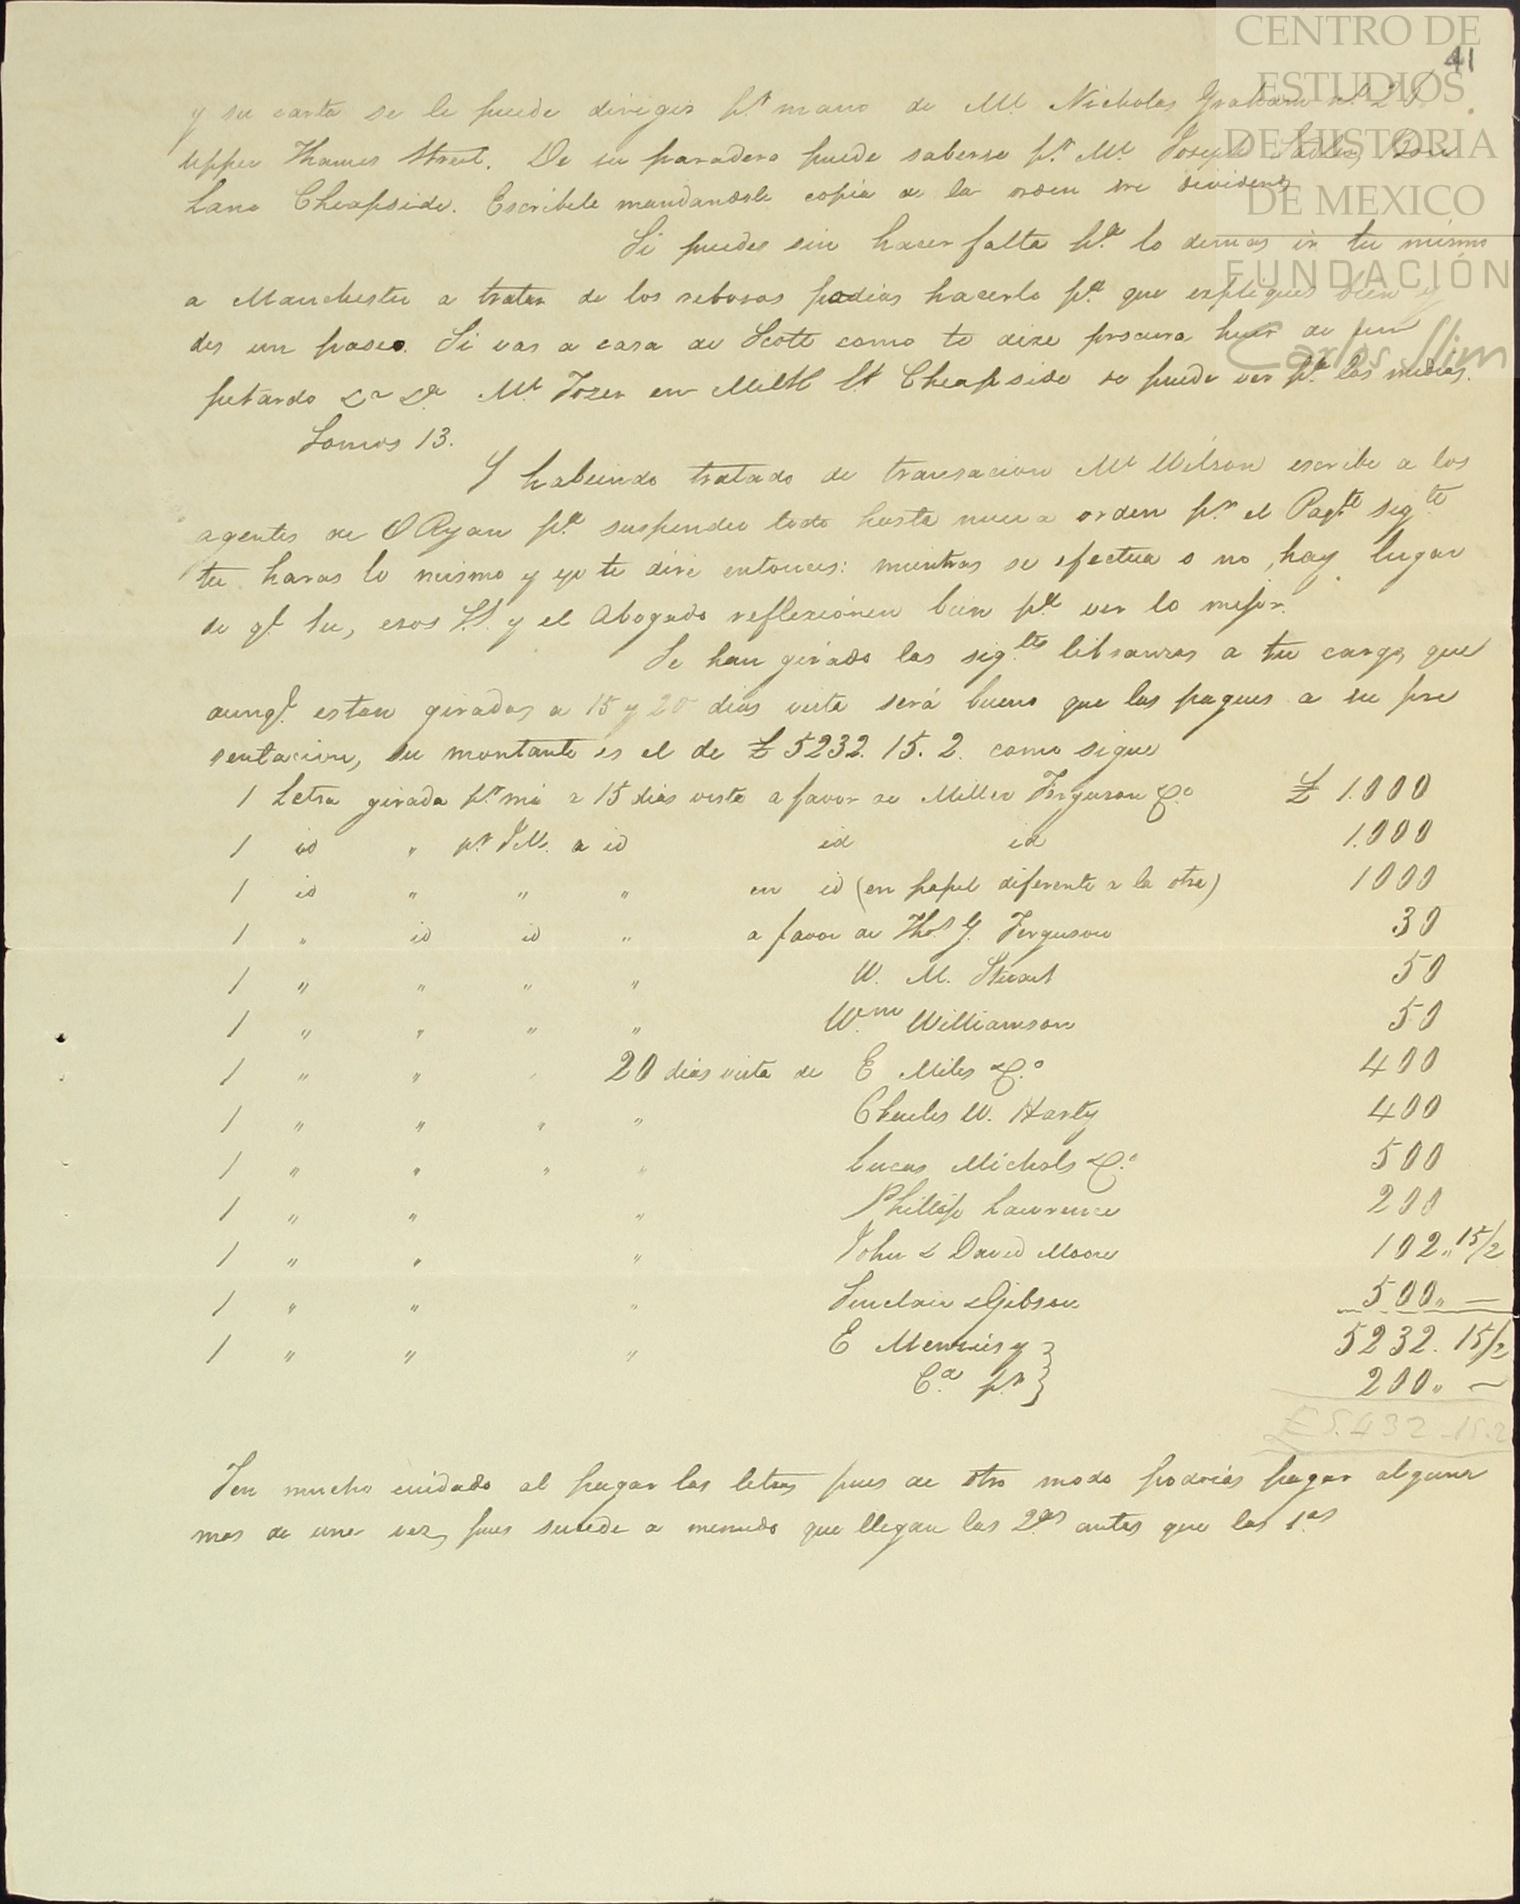 CENTRO DE
ESTUDIOS
DE HISTORIA
DE MEXICO
FUNDACIÓN
Carlos Slim
41
y su carta se le puede dirigir pr. mano de Mr. Nicholas Graham
Upper Thames Street. De su paradero puede saberse pr. Mr. Joseph
Lane Cheapside. Escribele mandandole copia de la orden
Si puedes sin hacer falta pa. lo demas ir tu mismo
a Manchester a tratar de los rebosos podias hacerlo pa. que expliques bien y
des un paseo. Si vas a casa de Scott como te dixe procura huir de un
petardo &a &a. Mr. Tozer en Milk St Cheapside se puede ver pa. las medias.
Somos 13.
Y habiendo tratado de transacion Mr Wilson escribe a los
agentes de O Ryan pa. suspender todo hasta nueva orden pr. el Paqte. sigte.
tu haras lo mismo y yo te dire entonces: mientras se efectua o no, hay lugar
de qe. tu, esos SS. y el Abogado reflexionen bien pa. ver lo mejor.
Se han girado las sigtes. libranzas a tu cargo, que
aunqe. estan giradas a 15 y 20 dias vista será bueno que las pagues a su pre
sentacion, su montante es el de £ 5232. 15. 2. como sigue
1 Letra girada pr. mi a 15 dias vista a favor de Miller Ferguson &Co. £ 1.000
1 id " pr. JM. a id id id 1.000
1 id " " " en id (en papel diferente a la otra) 1000
1 " id id " a favor de Thos. G. Ferguson 30
1 " " " " W. M. Stuart 50
1 " " " " Wm. Williamson 50
1 " " " 20 dias vista de E Miles &Co. 400
1 " " " " Charles W. Harty 400
1 " " " " Lucas Michols &Co. 500
1 " " " Phillip Lawrence 200
1 " " " John & David Moore 102 " 15/2
1 " " " Sinclair & Gibson 500 " —
1 " " " E Menzies y } 5232. 15/2
Ca. pr. } 200 " —
£ 5.432 - 15.2
Ten mucho cuidado al pagar las letras pues de otro modo podrias pagar alguna
mas de una vez, pues sucede a menudo que llegan las 2as. antes que las 1as